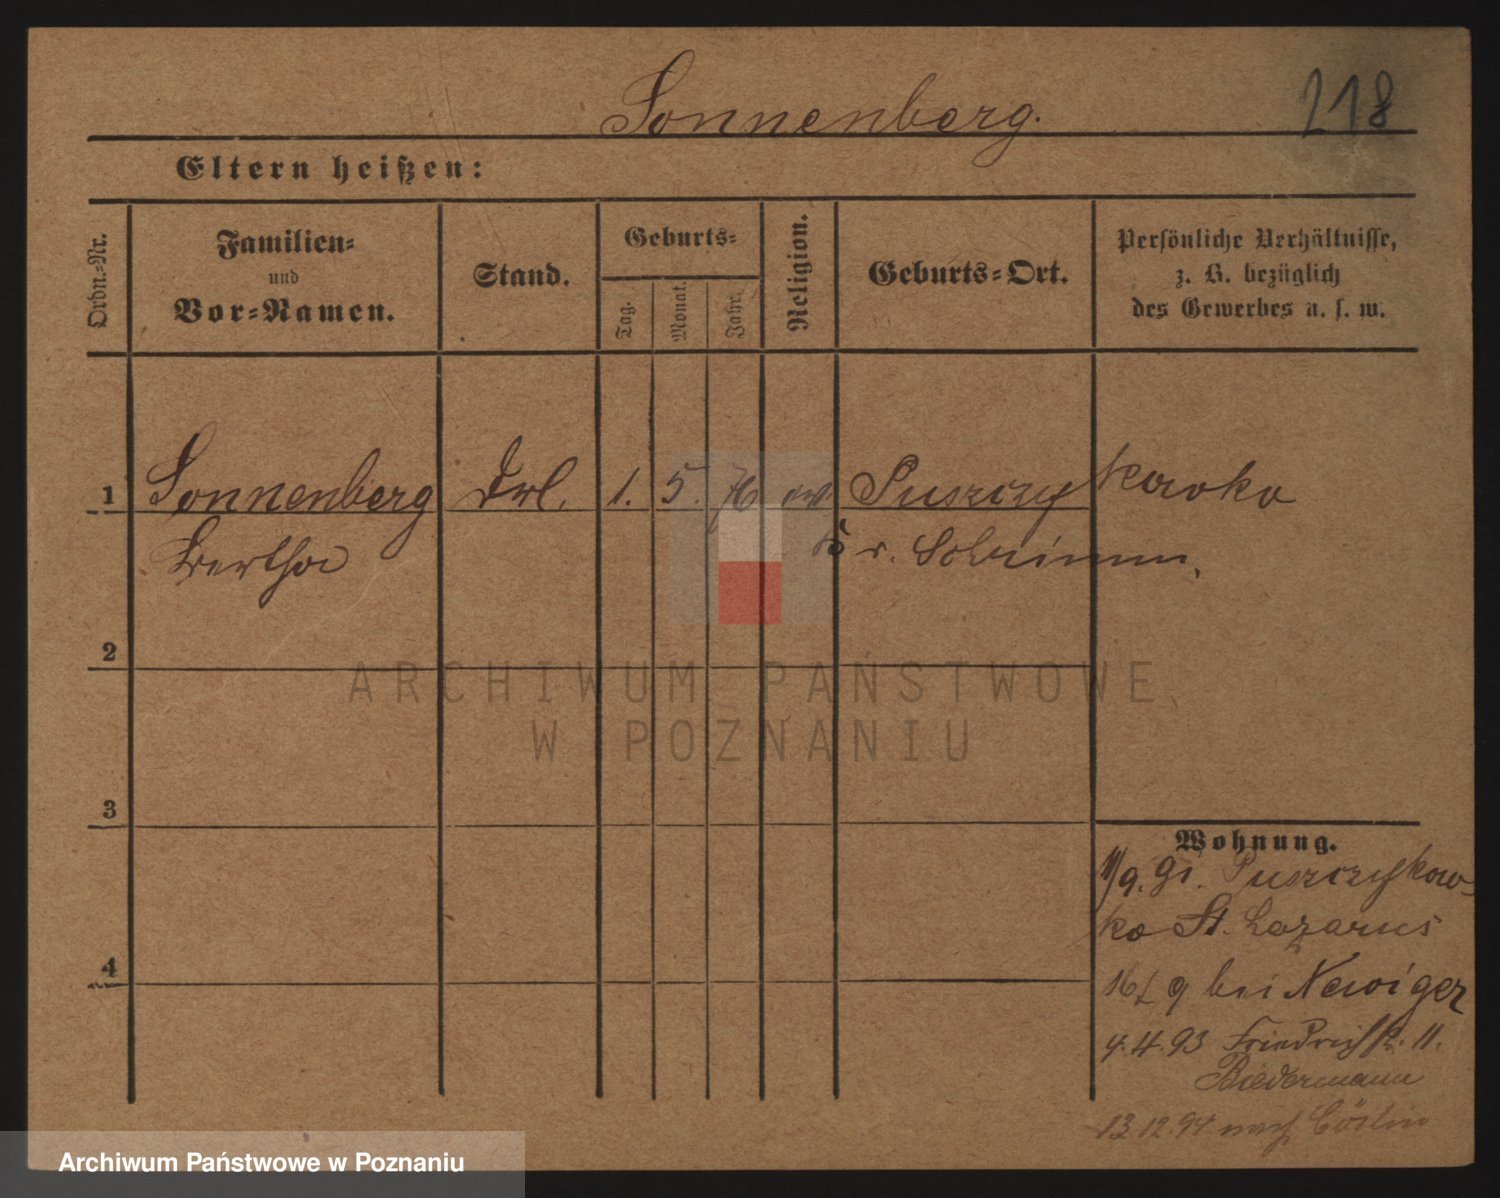 Sonnenberg.
218
Eltern heißen:
Ordn.-Nr.
Familien-
und
Vor-Namen.
Stand.
Geburts-
Tag.
Monat.
Jahr.
Religion.
Geburts-Ort.
Persönliche Verhältnisse,
z. B. bezüglich
des Gewerbes u. s. w.
1 Sonnenberg Frl. 1. 5. 76 ev Puszczykowko
Bertha Kr. Schrimm.
2
3
4
Wohnung.
11/9. 91. Puszczykow-
ko St. Lazarus
16/9 bei Newiger
4.4.93 Friedrichstr. 11.
Biedermann
13.12.94 nach Cöslin
ARCHIWUM PAŃSTWOWE
W POZNANIU
Archiwum Państwowe w Poznaniu